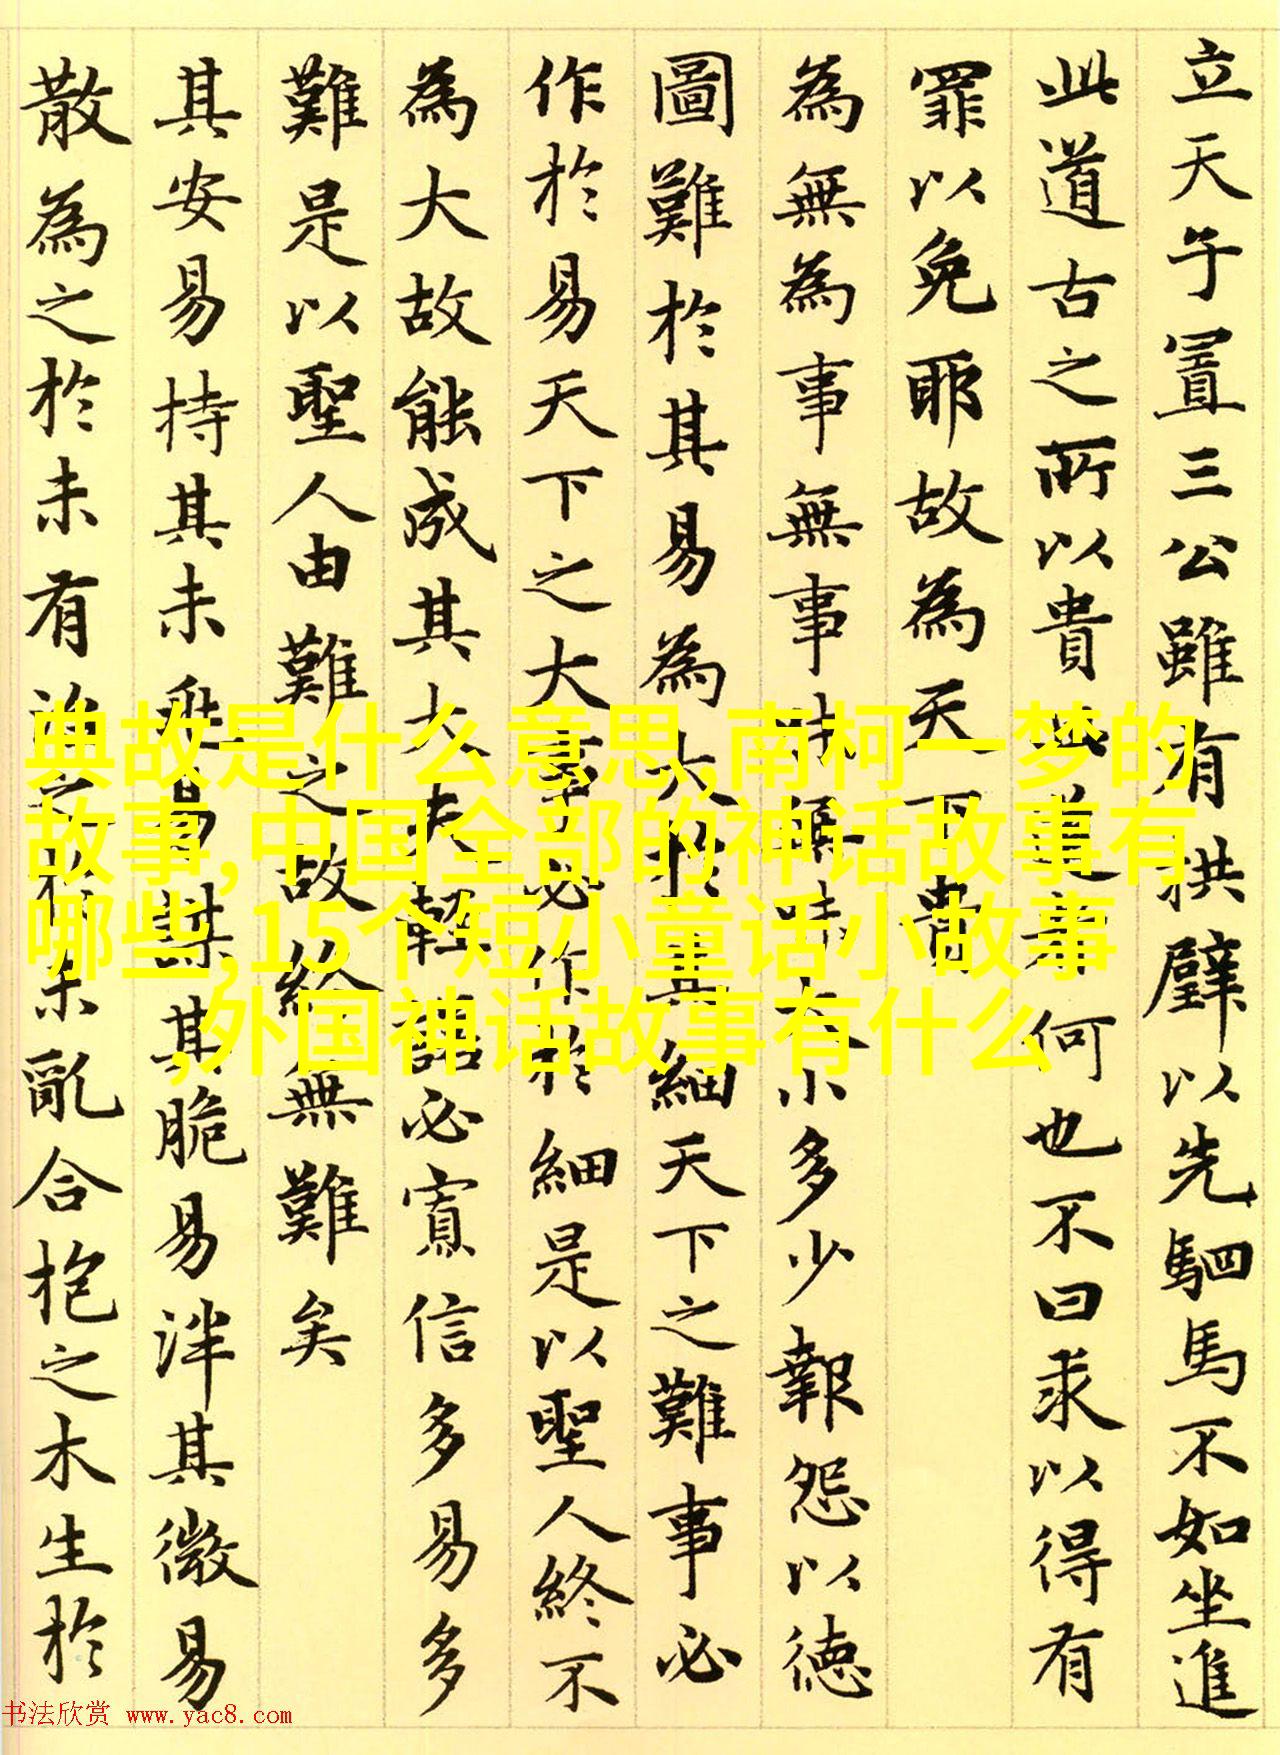 立天子置三公雖有拱璧以先駟馬不如坐進
此道古之所以貴此道者何也不曰求以得有
罪以免耶故為天下貴
為無為事無事味無味大小多少報怨以德
圖難於其易為大於其細天下之難事必
作於易天下之大事必作於細是以聖人終不
為大故能成其大夫輕諾必寡信多易多
難是以聖人由難之故終無難矣
其安易持其未兆易謀其脆易泮其微易
散為之於未有治之於未亂合抱之木生於
典故是什么意思,南柯一梦的
故事,中国全部的神话故事有
哪些,15个短小童话小故事
,外国神话故事有什么
书法欣赏 www.yac8.com